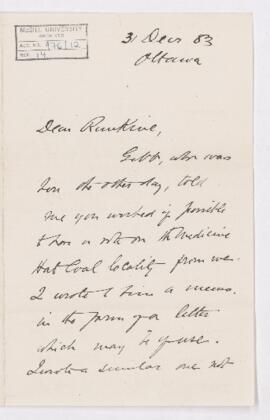 McGILL UNIVERSITY
ARCHIVES
ACC. NO. 976/12
REF. 14
31 Decr 83
Ottawa
Dear Rankine,
Gibb, who was
here the other day, told
me you wished if possible
to have a note on the Medicine
Hat Coal locality from me.
I wrote to him a memo.
in the form of a letter
which may be of use.
I wrote a similar one not